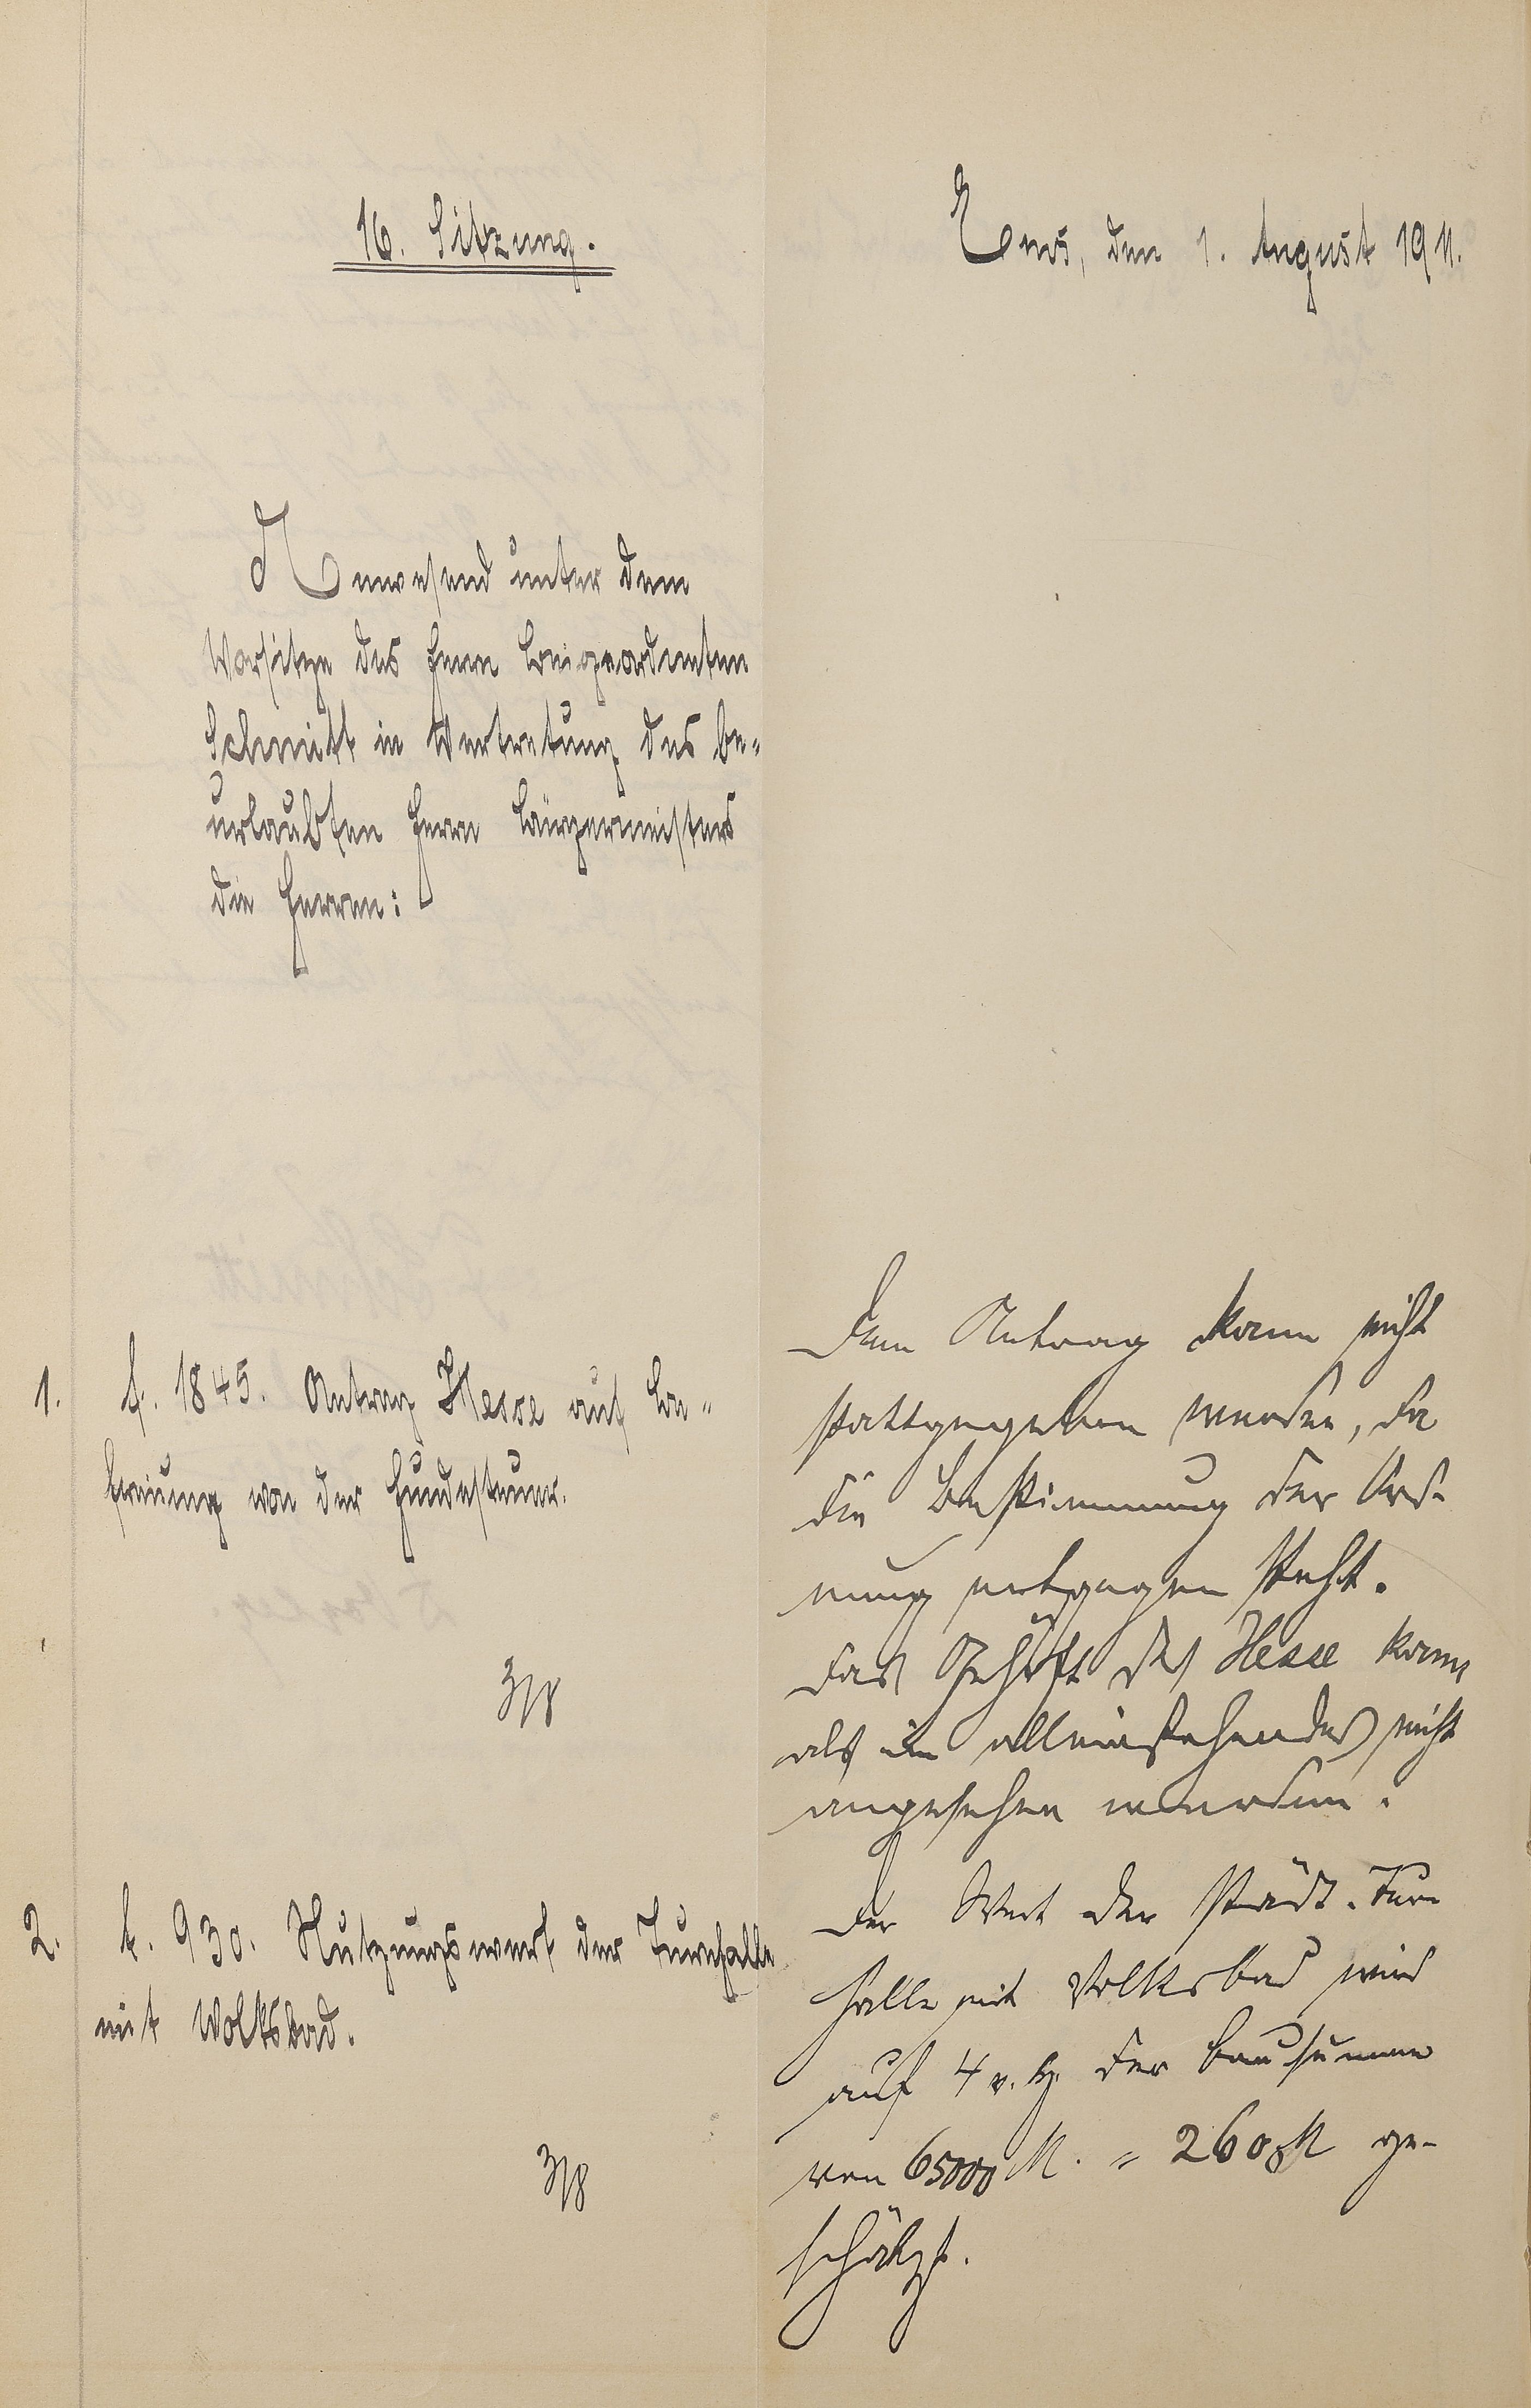 16. Sitzung.
Ems, den 1. August 1911.
Anwesend unter dem
Vorsitze des Herrn Beigeordneten
Schmitt in Vertretung des be-
urlaubten Herrn Bürgermeisters
die Herren:
1. 1845. Antrag Hesse auf Be-
freiung von der Hundesteuer.
3/8
Dem Antrag kann nicht
stattgegeben werden, da
die Bestimmung der Ord-
nung entgegen steht.
Das Gehöft des Hesse kann
als ein alleinstehendes nicht
angesehen werden.
2. 930. Nutzungswert der Turnhalle
mit Volksbad.
3/8
Der Wert der Städt. Turn
halle mit Volksbad wird
auf 4 v. H. der Bausumme
von 65000 M. = 2600 M ge-
schätzt.